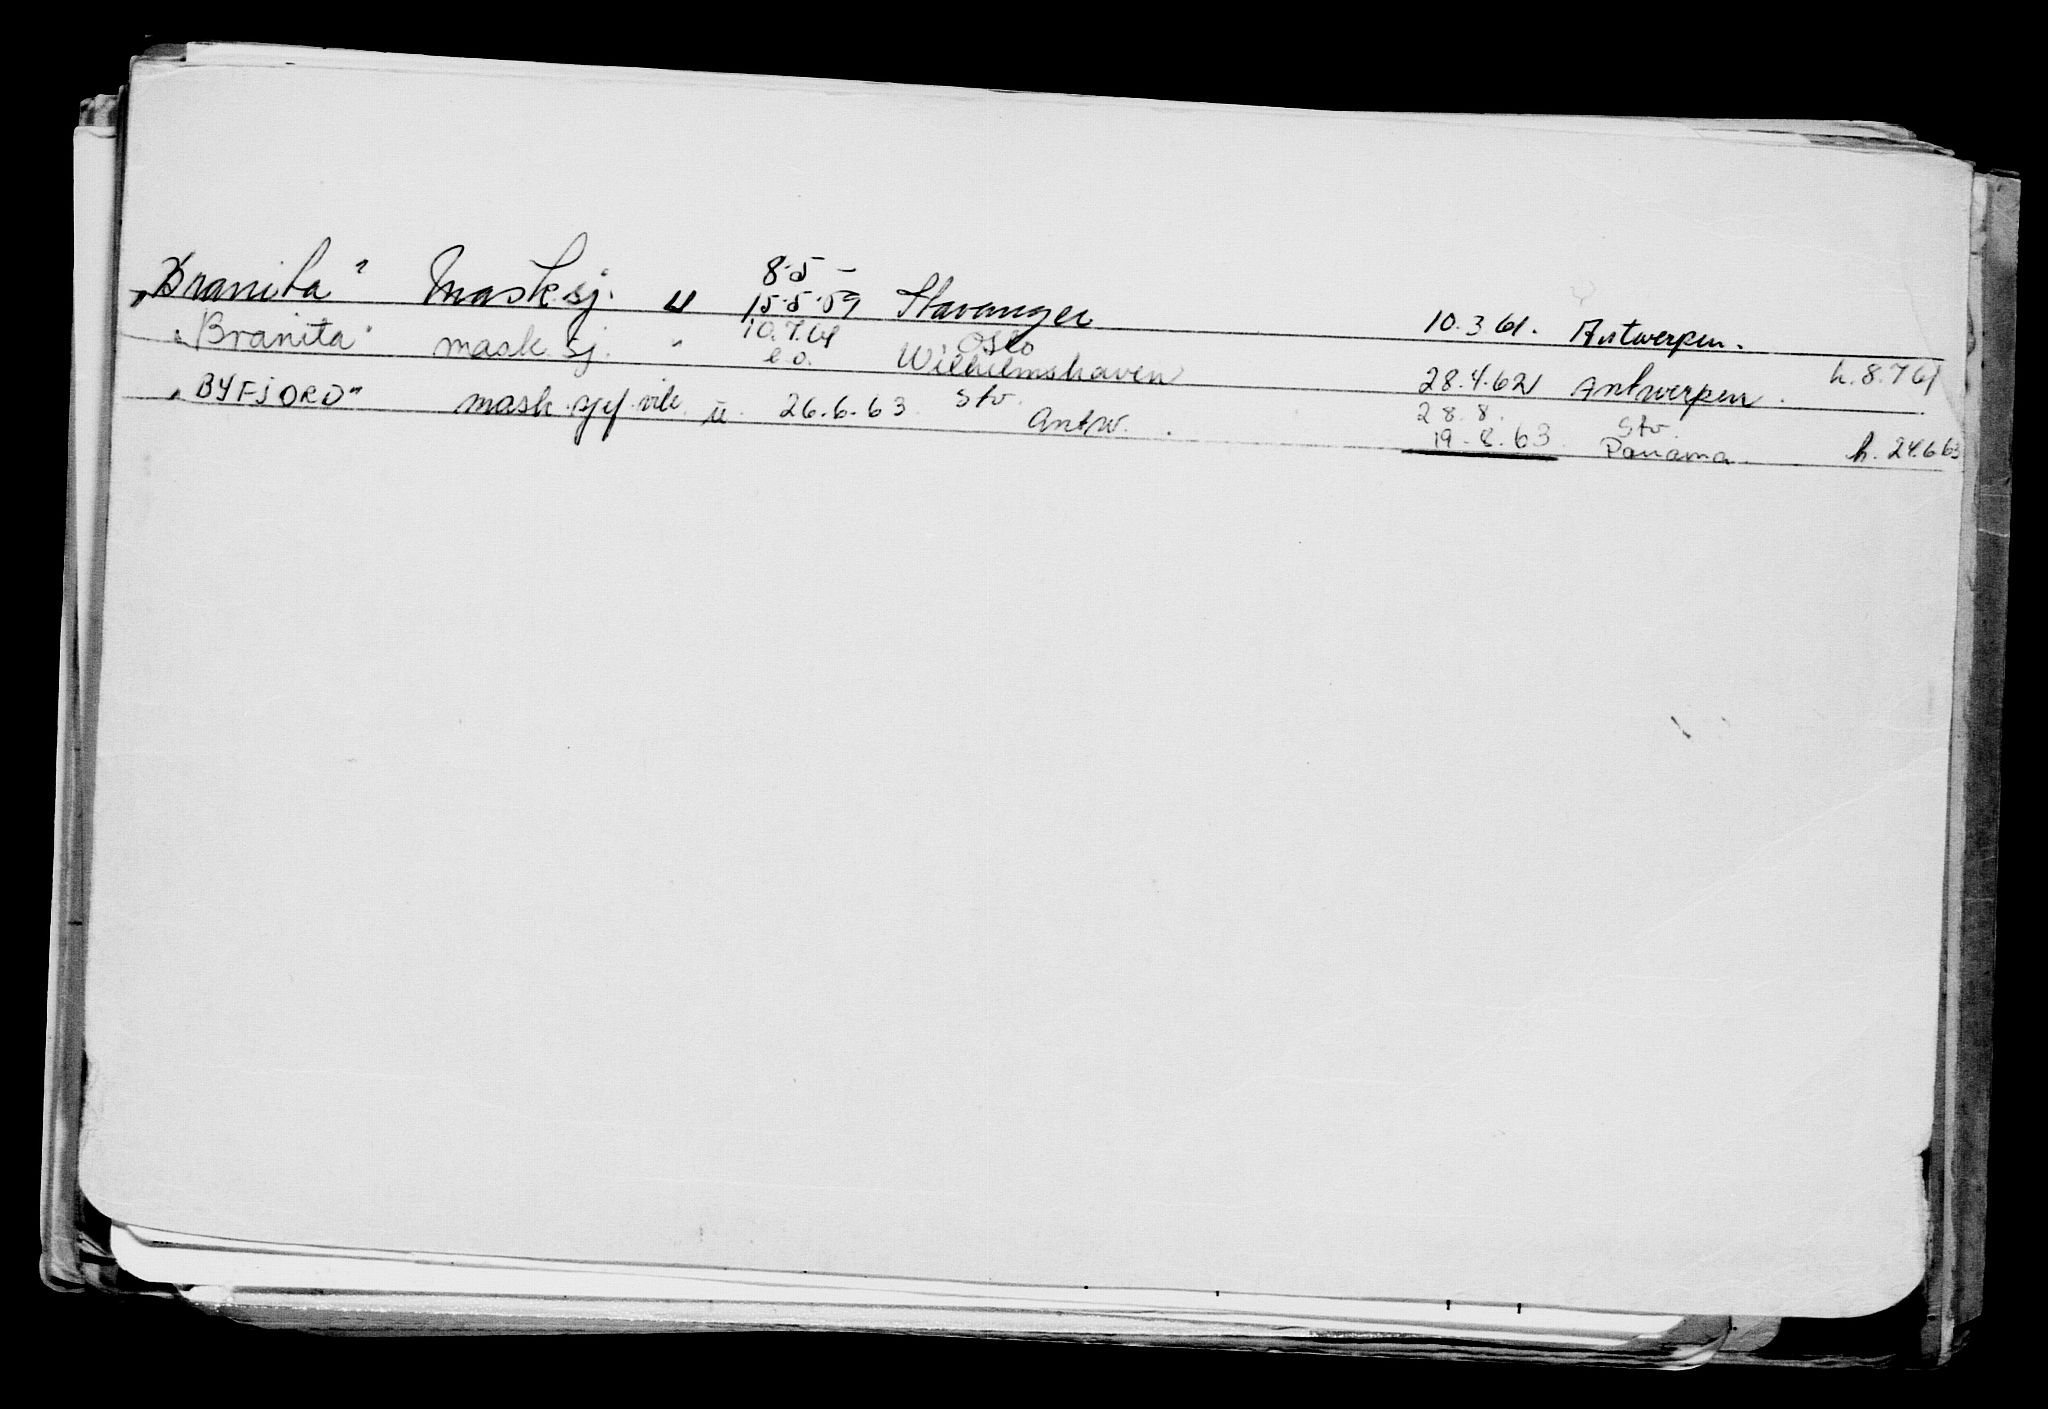 8.5 –
„Branita" Mask.sj. " 15.5.59 Stavanger 10.3 61. Antwerpen.
10.7.61 Oslo
„Branita" mask sj. " e.o. Wilhelmshaven 28.4.62 Antwerpen. h. 8.7 61
28.8. Stv.
„BYFJORD" mask.sjef.vik. u. 26.6.63 Stv. Antw. 19.8.63 Panama. h. 24.6 63